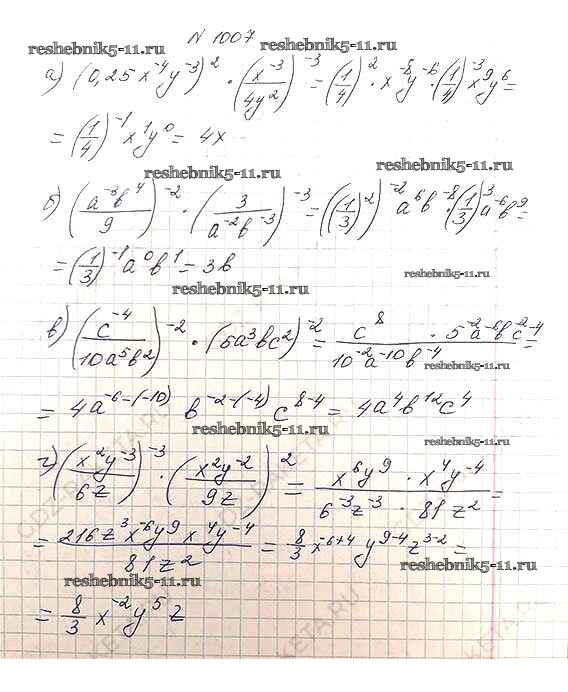 N 1007
reshebnik5-11.ru reshebnik5-11.ru
а) (0,25x⁻⁴y⁻³)² · (x⁻³/4y²)⁻³ = (1/4)² · x⁻⁸y⁻⁶ · (1/4)⁻³ x⁹y⁶ =
= (1/4)⁻¹ x¹y⁰ = 4x
reshebnik5-11.ru
б) (a⁻³b⁴/9)⁻² · (3/a⁻²b⁻³)⁻³ = ((1/3)²)⁻² a⁶b⁻⁸ · (1/3)³ a⁻⁶b⁹ =
= (1/3)⁻¹ a⁰b¹ = 3b
reshebnik5-11.ru
reshebnik5-11.ru
в) (c⁻⁴/10a⁵b²)⁻² · (5a³bc²)⁻² = c⁸ · 5⁻²a⁻⁶b⁻²c⁻⁴/10⁻²a⁻¹⁰b⁻⁴ =
reshebnik5-11.ru
= 4a⁻⁶⁻⁽⁻¹⁰⁾ b⁻²⁻⁽⁻⁴⁾ c⁸⁻⁴ = 4a⁴b¹²c⁴
reshebnik5-11.ru
г) (x²y⁻³/6z)⁻³ · (x²y⁻²/9z)² = x⁶y⁹ · x⁴y⁻⁴/6⁻³z⁻³ · 81z² =
= 216z³x⁻⁶y⁹x⁴y⁻⁴/81z² = 8/3 x⁻⁶⁺⁴ y⁹⁻⁴ z³⁻² =
reshebnik5-11.ru
reshebnik5-11.ru
= 8/3 x⁻²y⁵z